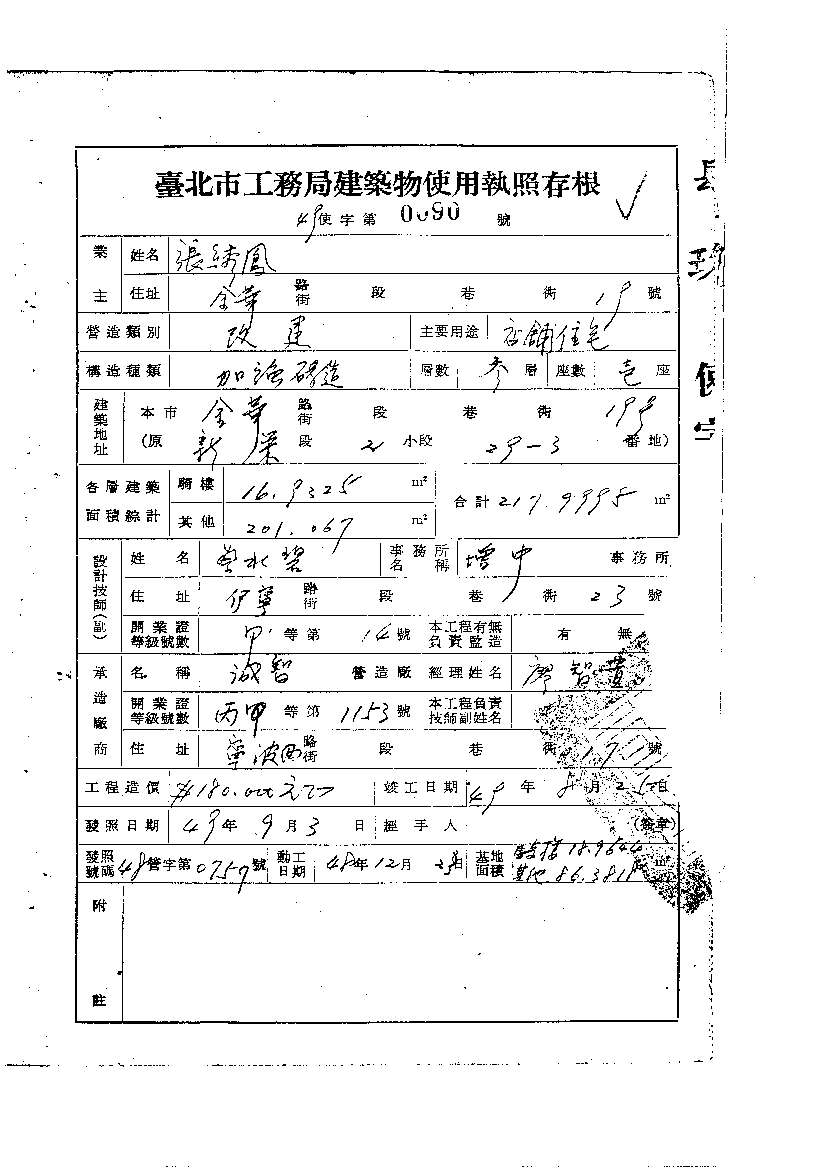 臺北市工務局建築物使用執照存根
49使字第 0090 號
業主 姓名 張綉鳳
住址 金華 路街 段 巷 衖 19 號
營造類別 改建 主要用途 店舖住宅
構造種類 加強磚造 層數 叁層 座數 壱座
建築地址 本市 金華 路街 段 巷 衖 19號
(原 段 2 小段 29-3 番地)
各層建築面積綜計 騎樓 16.9325 m² 合計 217.9995 m²
其他 201.067 m²
設計技師(副) 姓名 事務所名稱 增中 事務所
住址 伊寧 路街 段 巷 衖 23 號
開業證等級號數 甲 等第 14 號 本工程有無負責監造 有 無
承造廠商 名稱 誠智 營造廠 經理姓名 廖智貴
開業證等級號數 丙甲 等第 1153 號 本工程負責技師副姓名
住址 寧波西 路街 段 巷 衖 17 號
工程造價 180.000元 竣工日期 49 年 8 月 25 日
發照日期 49 年 9 月 3 日 經手人 (簽章)
發照號碼 48營字第0757號 動工日期 48年12月 日 基地面積 18.9644 m²
其他 86.3818
附註